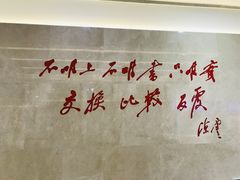 不唯上 不唯書 只唯實
交換 比較 反覆
陳雲